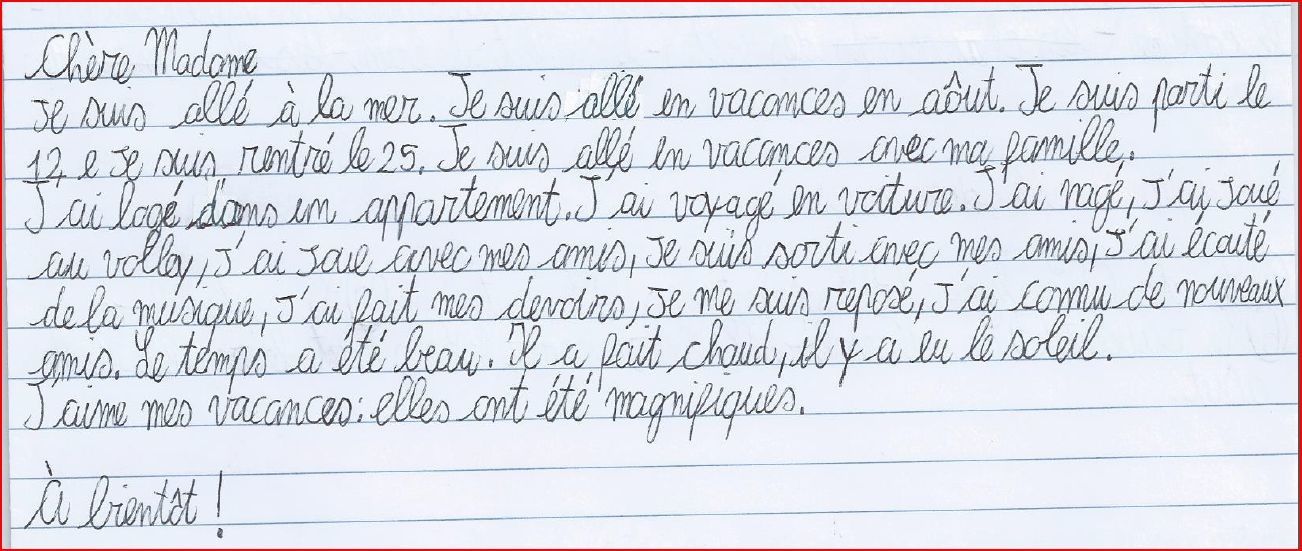 Chère Madame
Je suis allé à la mer. Je suis allé en vacances en aôut. Je suis parti le
12 e je suis rentré le 25. Je suis allé en vacances avec ma famille.
J'ai logé dans un appartement. J'ai voyagé en voiture. J'ai nagé, j'ai joué
au volley, j'ai joue avec mes amis, je suis sorti avec mes amis, j'ai écouté
de la musique, j'ai fait mes devoirs, je me suis reposé, j'ai connu de nouveaux
amis. Le temps a été beau. Il a fait chaud, il y a eu le soleil.
J'aime mes vacances: elles ont été magnifiques.
À bientôt!